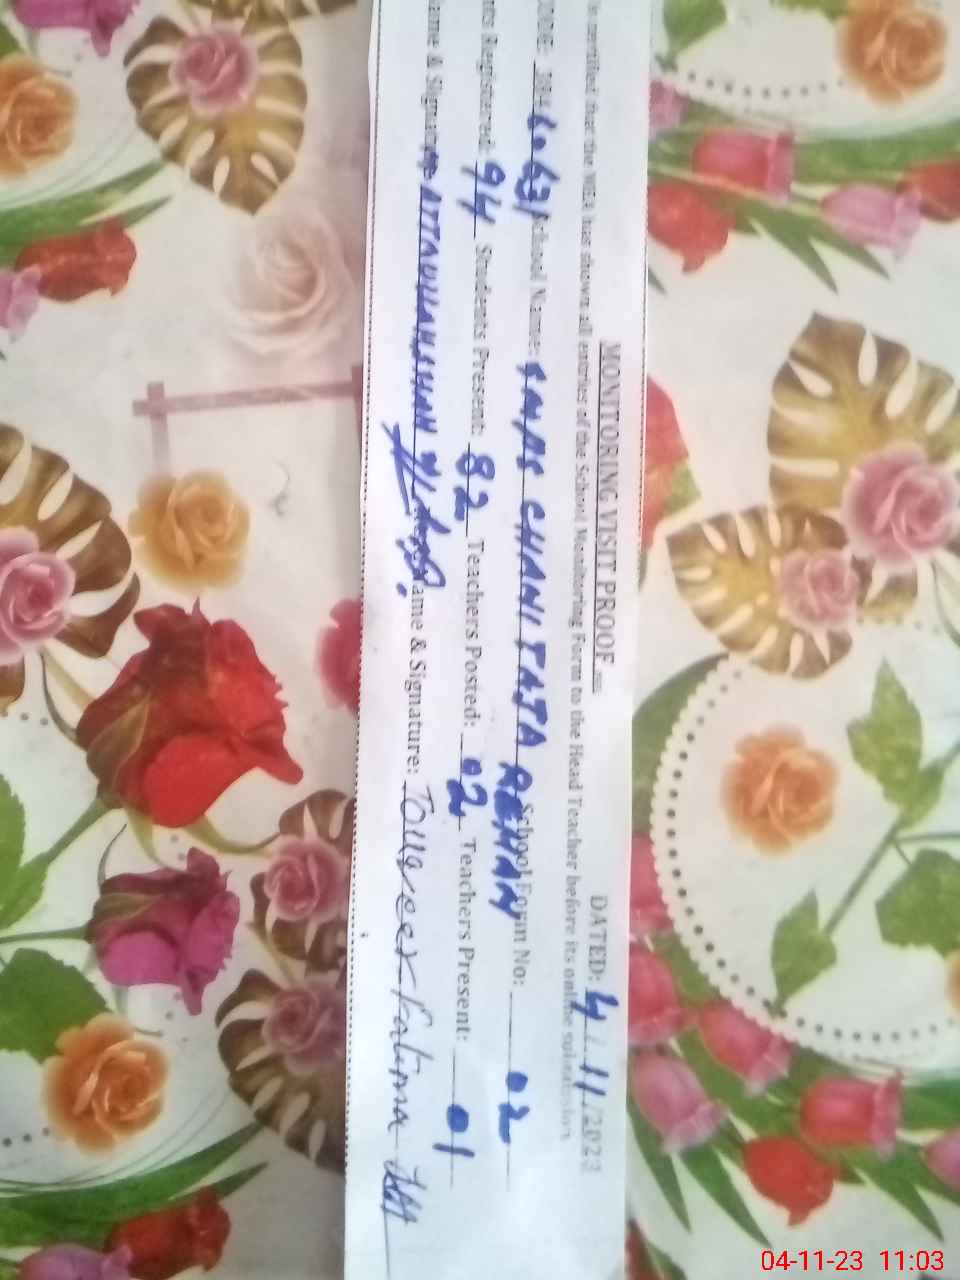 MONITORING VISIT PROOF
DATED: 4/11/2023
is certified that the MEA has shown all entries of the School Monitoring Form to the Head Teacher before its online submission
CODE: School Name: CHANI TAJA REHAN School Form No: 02
nts Registered: 94 Students Present: 82 Teachers Posted: 02 Teachers Present: 01
ame & Signature ATTAULLAH KHAN ame & Signature: Touseer Fatima
04-11-23 11:03